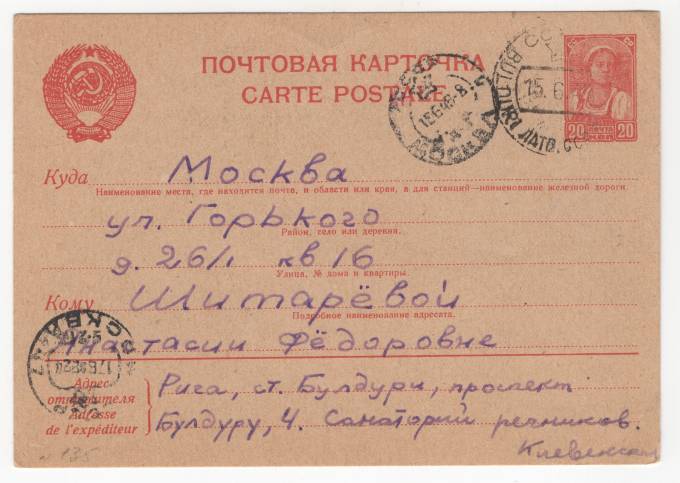 ПОЧТОВАЯ КАРТОЧКА
CARTE POSTALE
20 ПОЧТА 20
BULDURI ЛАТВ.ССР
15.6
МОСКВА
Куда Москва
Наименование места, где находится почта, и области или края, а для станций—наименование железной дороги
ул. Горького
Район, село или деревня.
д. 26/1 кв 16
Улица, № дома и квартиры.
Кому Шитарёвой
Подробное наименование адресата.
Анастасии Фёдоровне
МОСКВА
Адрес отправителя
Adresse de l'expéditeur
Рига, ст. Булдури, проспект
Булдуру, 4. Санаторий речников.
135